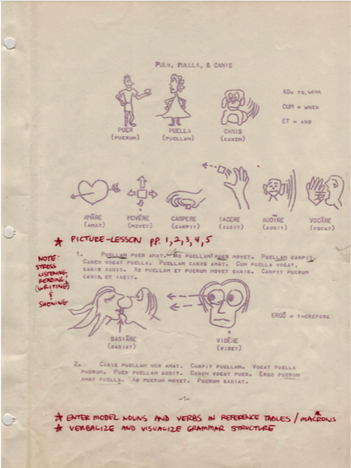 PUER, PUELLA, & CANIS
AD= TO, NEAR
CUM = WHEN
ET = AND
PUER PUELLA CANIS
(PUERUM) (PUELLAM) (CANEM)
AMĀRE MOVĒRE CARPERE IACERE AUDĪRE VOCĀRE
(AMAT) (MOVET) (CARPIT) (IACIT) (AUDIT) (VOCAT)
★ PICTURE-LESSON pp. 1, 2, 3, 4, 5
NOTE:
STRESS
LISTENING,
READING,
(WRITING)
&
SHOWING
1. PUELLAM PUER AMAT. AD PUELLAM PUER MOVET. PUELLAM CARPIT.
CANEM VOCAT PUELLA. PUELLAM CANIS AMAT. CUM PUELLA VOCAT,
CANIS AUDIT. AD PUELLAM ET PUERUM MOVET CANIS. CARPIT PUERUM
CANIS, ET IACIT.
ERGŌ = THEREFORE
BASIĀRE VIDĒRE
(BASIAT) (VIDET)
2. CANIS PUELLAM NON AMAT. CARPIT PUELLAM. VOCAT PUELLA
PUERUM. PUER PUELLAM AUDIT. CANEM VOCAT PUER. ERGO PUERUM
AMAT PUELLA. AD PUERUM MOVET. PUERUM BASIAT.
-1-
★ ENTER MODEL NOUNS AND VERBS IN REFERENCE TABLES / MACRONS
★ VERBALIZE AND VISUALIZE GRAMMAR STRUCTURE